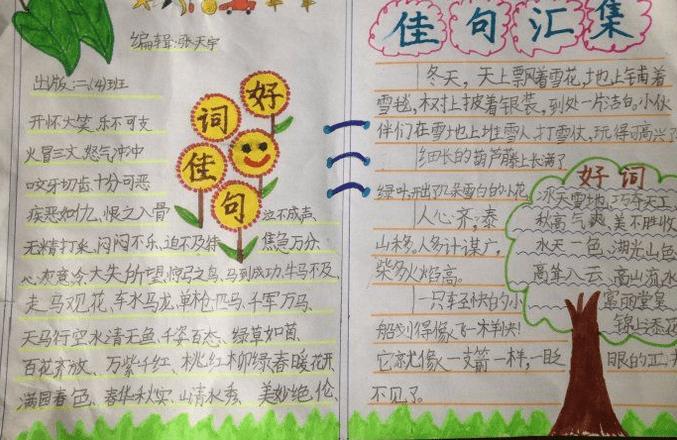 编辑:张天宇
出版:二、(4)班
好
词
佳
句
开怀大笑、乐不可支
火冒三丈、怒气冲冲
咬牙切齿、十分可恶
疾恶如仇、恨之入骨 泣不成声、
无精打采、闷闷不乐、迫不及待 焦急万分、
心灰意冷、大失所望、惊弓之鸟、马到成功、牛马不及、
走马观花、车水马龙、单枪匹马、千军万马、
天马行空、水清无鱼、千姿百态、绿草如茵、
百花齐放、万紫千红、桃红柳绿、春暖花开、
满园春色、春华秋实、山清水秀、美妙绝伦、
佳句汇集
冬天，天上飘着雪花，地上铺着
雪毯，树上披着银装，到处一片洁白。小伙
伴们在雪地上堆雪人，打雪仗，玩得可高兴了
细长的葫芦藤上长满了
绿叶，开出了几朵雪白的小花
人心齐，泰
山移。人多计谋广，
柴多火焰高。
一只轻快的小
船划得像飞一样快!
它就像一支箭一样，一眨 眼的工夫
不见了。
好词
冰天雪地、巧夺天工
秋高气爽、美不胜收
水天一色、湖光山色
高耸入云、高山流水
富丽堂皇
锦上添花